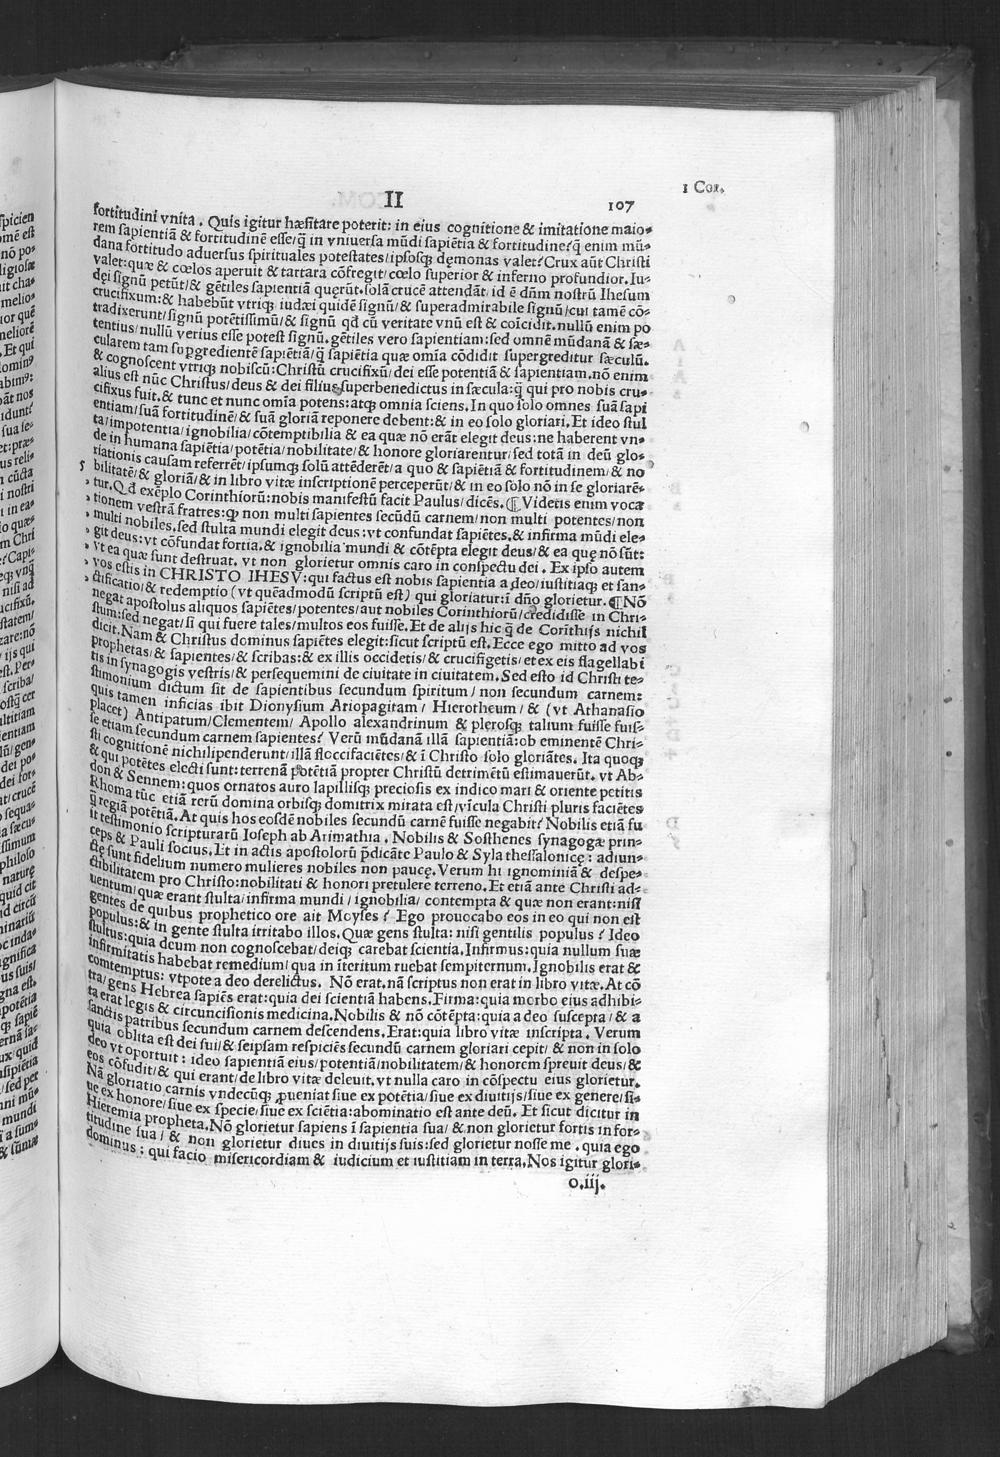 II
107
1 Cor.
fortitudini vnita. Quis igitur hæsitare poterit: in eius cognitione & imitatione maio-
rem sapientiã & fortitudinẽ esse/q̃ in vniuersa mũdi sapiẽtia & fortitudine? q̃ enim mũ-
dana fortitudo aduersus spirituales potestates/ipsosq; dęmonas valet? Crux aũt Christi
valet: quæ & cœlos aperuit & tartara cõfregit/cœlo superior & inferno profundior. Iu-
dęi signũ petũt/& gẽtiles sapientiã quęrũt. solã crucẽ attendãt/id ẽ dñm nostrũ Ihesum
crucifixum: & habebũt vtriq; iudæi quidẽ signũ/& superadmirabile signũ/cui tamẽ cõ-
tradixerunt/signũ potẽtissimũ/& signũ qđ cũ veritate vnũ est & coĩcidit. nullũ enim po
tentius/nullũ verius esse potest signũ. gẽtiles vero sapientiam: sed omnẽ mũdanã & sæ-
cularem tam supgredientẽ sapiẽtiã/q̃ sapiẽtia quæ omĩa cõdidit supergreditur sæculũ.
& cognoscent vtriq; nobiscũ: Christũ crucifixũ/dei esse potentiã & sapientiam. nõ enim
alius est nũc Christus/deus & dei filius superbenedictus in sæcula: q̃ qui pro nobis cru-
cifixus fuit. & tunc et nunc omĩa potens: atq; omnia sciens. In quo solo omnes suã sapi
entiam/suã fortitudinẽ/& suã gloriã reponere debent: & in eo solo gloriari. Et ideo stul
ta/impotentia/ignobilia/cõtemptibilia & ea quæ nõ erãt elegit deus: ne haberent vn-
de in humana sapiẽtia/potẽtia/nobilitate/& honore gloriarentur/sed totã in deũ glo-
riationis causam referrẽt/ipsumq; solũ attẽderẽt/a quo & sapiẽtiã & fortitudinem/& no
5 bilitatẽ/& gloriã/& in libro vitæ inscriptionẽ perceperũt/& in eo solo nõ in se gloriarẽ-
, tur. Qđ exẽplo Corinthiorũ: nobis manifestũ facit Paulus/dicẽs. ¶ Videtis enim voca
, tionem vestrã fratres: qꝫ non multi sapientes secũdũ carnem/non multi potentes/non
, multi nobiles. sed stulta mundi elegit deus: vt confundat sapiẽtes. & infirma mũdi ele-
, git deus: vt cõfundat fortia. & ignobilia mundi & cõtẽpta elegit deus/& ea quę nõ sũt:
, vt ea quæ sunt destruat. vt non glorietur omnis caro in conspectu dei. Ex ipso autem
, vos estis in CHRISTO IHESV: qui factus est nobis sapientia a deo/iustitiaq; et san-
, ctificatio/& redemptio (vt quẽadmodũ scriptũ est) qui gloriatur: ĩ dño glorietur. ¶ Nõ
negat apostolus aliquos sapiẽtes/potentes/aut nobiles Corinthiorũ/credidisse in Chri-
stum: sed negat/si qui fuere tales/multos eos fuisse. Et de alijs hic q̃ de Corĩthijs nichil
dicit. Nam & Christus dominus sapiẽtes elegit: sicut scriptũ est. Ecce ego mitto ad vos
prophetas/& sapientes/& scribas: & ex illis occidetis/& crucifigetis/et ex eis flagellabi
tis in synagogis vestris/& persequemini de ciuitate in ciuitatem. Sed esto id Christi te-
stimonium dictum sit de sapientibus secundum spiritum/non secundum carnem:
quis tamen inficias ibit Dionysium Ariopagitam/Hierotheum/& (vt Athanasio
placet) Antipatum/Clementem/Apollo alexandrinum & plerosq; talium fuisse fuis-
se etiam secundum carnem sapientes? Verũ mũdanã illã sapientiã: ob eminentẽ Chri-
sti cognitionẽ nichilipenderunt/illã floccifaciẽtes/& ĩ Christo solo gloriãtes. Ita quoq;
& qui potẽtes electi sunt: terrenã potẽtiã propter Christũ detrimẽtũ estimauerũt. vt Ab-
don & Sennem: quos ornatos auro lapillisq; preciosis ex indico mari & oriente petitis
Rhoma tũc etiã rerũ domina orbisq; domitrix mirata est/vĩcula Christi pluris faciẽtes
q̃ regiã potẽtiã. At quis hos eosdẽ nobiles secundũ carnẽ fuisse negabit? Nobilis etiã fu
it testimonio scripturarũ Ioseph ab Arimathia. Nobilis & Sosthenes synagogæ prin-
ceps & Pauli socius. Et in actis apostolorũ p̃dicãte Paulo & Syla thessalonicę: adiun-
ctę sunt fidelium numero mulieres nobiles non paucę. Verum hi ignominiã & despe-
ctibilitatem pro Christo: nobilitati & honori pretulere terreno. Et etiã ante Christi ad-
uentum/quæ erant stulta/infirma mundi/ignobilia/contempta & quæ non erant: nisi
gentes de quibus prophetico ore ait Moyses? Ego prouocabo eos in eo qui non est
populus: & in gente stulta irritabo illos. Quæ gens stulta: nisi gentilis populus? Ideo
stultus: quia deum non cognoscebat/deiq; carebat scientia. Infirmus: quia nullum suæ
infirmitatis habebat remedium/qua in ĩteritum ruebat sempiternum. Ignobilis erat &
comtemptus: vtpote a deo derelictus. Nõ erat. nã scriptus non erat in libro vitæ. At cõ
tra/gens Hebrea sapiẽs erat: quia dei scientiã habens. Firma: quia morbo eius adhibi-
ta erat legis & circuncisionis medicina. Nobilis & nõ cõtẽpta: quia a deo suscepta/& a
sanctis patribus secundum carnem descendens. Erat: quia libro vitæ inscripta. Verum
quia oblita est dei sui/& seipsam respiciẽs secundũ carnem gloriari cepit/& non in solo
deo vt oportuit: ideo sapientiã eius/potentiã/nobilitatem/& honorem spreuit deus/&
eos cõfudit/& qui erant/de libro vitæ deleuit. vt nulla caro in cõspectu eius glorietur.
Nã gloriatio carnis vndecũq; ꝓueniat siue ex potẽtia/siue ex diuitijs/siue ex genere/si-
ue ex honore/siue ex specie/siue ex sciẽtia: abominatio est ante deũ. Et sicut dicitur in
Hieremia propheta. Nõ glorietur sapiens ĩ sapientia sua/& non glorietur fortis in for-
titudine sua/& non glorietur diues in diuitijs suis: sed glorietur nosse me. quia ego
dominus: qui facio misericordiam & iudicium et iustitiam in terra. Nos igitur glori-
o.iij.